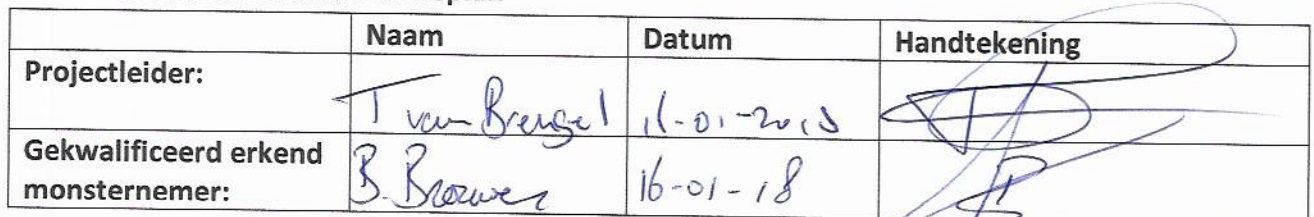 Naam Datum Handtekening
Projectleider: T van Brengel 16-01-2018
Gekwalificeerd erkend
monsternemer: B. Brouwer 16-01-18